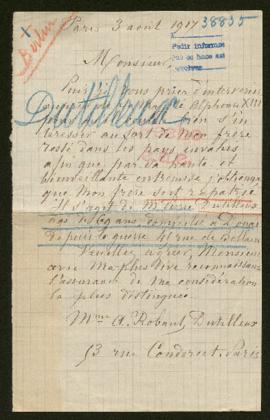 Paris 3 août 1917
38835
Berlin
Pedir informes
Monsieur
Puis-je vous prier d'intervenir
Alphonse XIII
Dutilleux
s'in
téresser au sort de mon frère
resté dans les pays envahis
afin que par sa haute et
bienveillante entremise j'obtienne
que mon frère soit rapatrié
Il s'agit de M. Dutilleux
69 ans domicilié à Douai
depuis la guerre 41 rue de Bellain
Veuillez agréer, Monsieur
avec ma plus vive reconnaissance
l'assurance de ma considération
la plus distinguée
Mme A. Robaut, Dutilleux
53 rue Condorcet, Paris